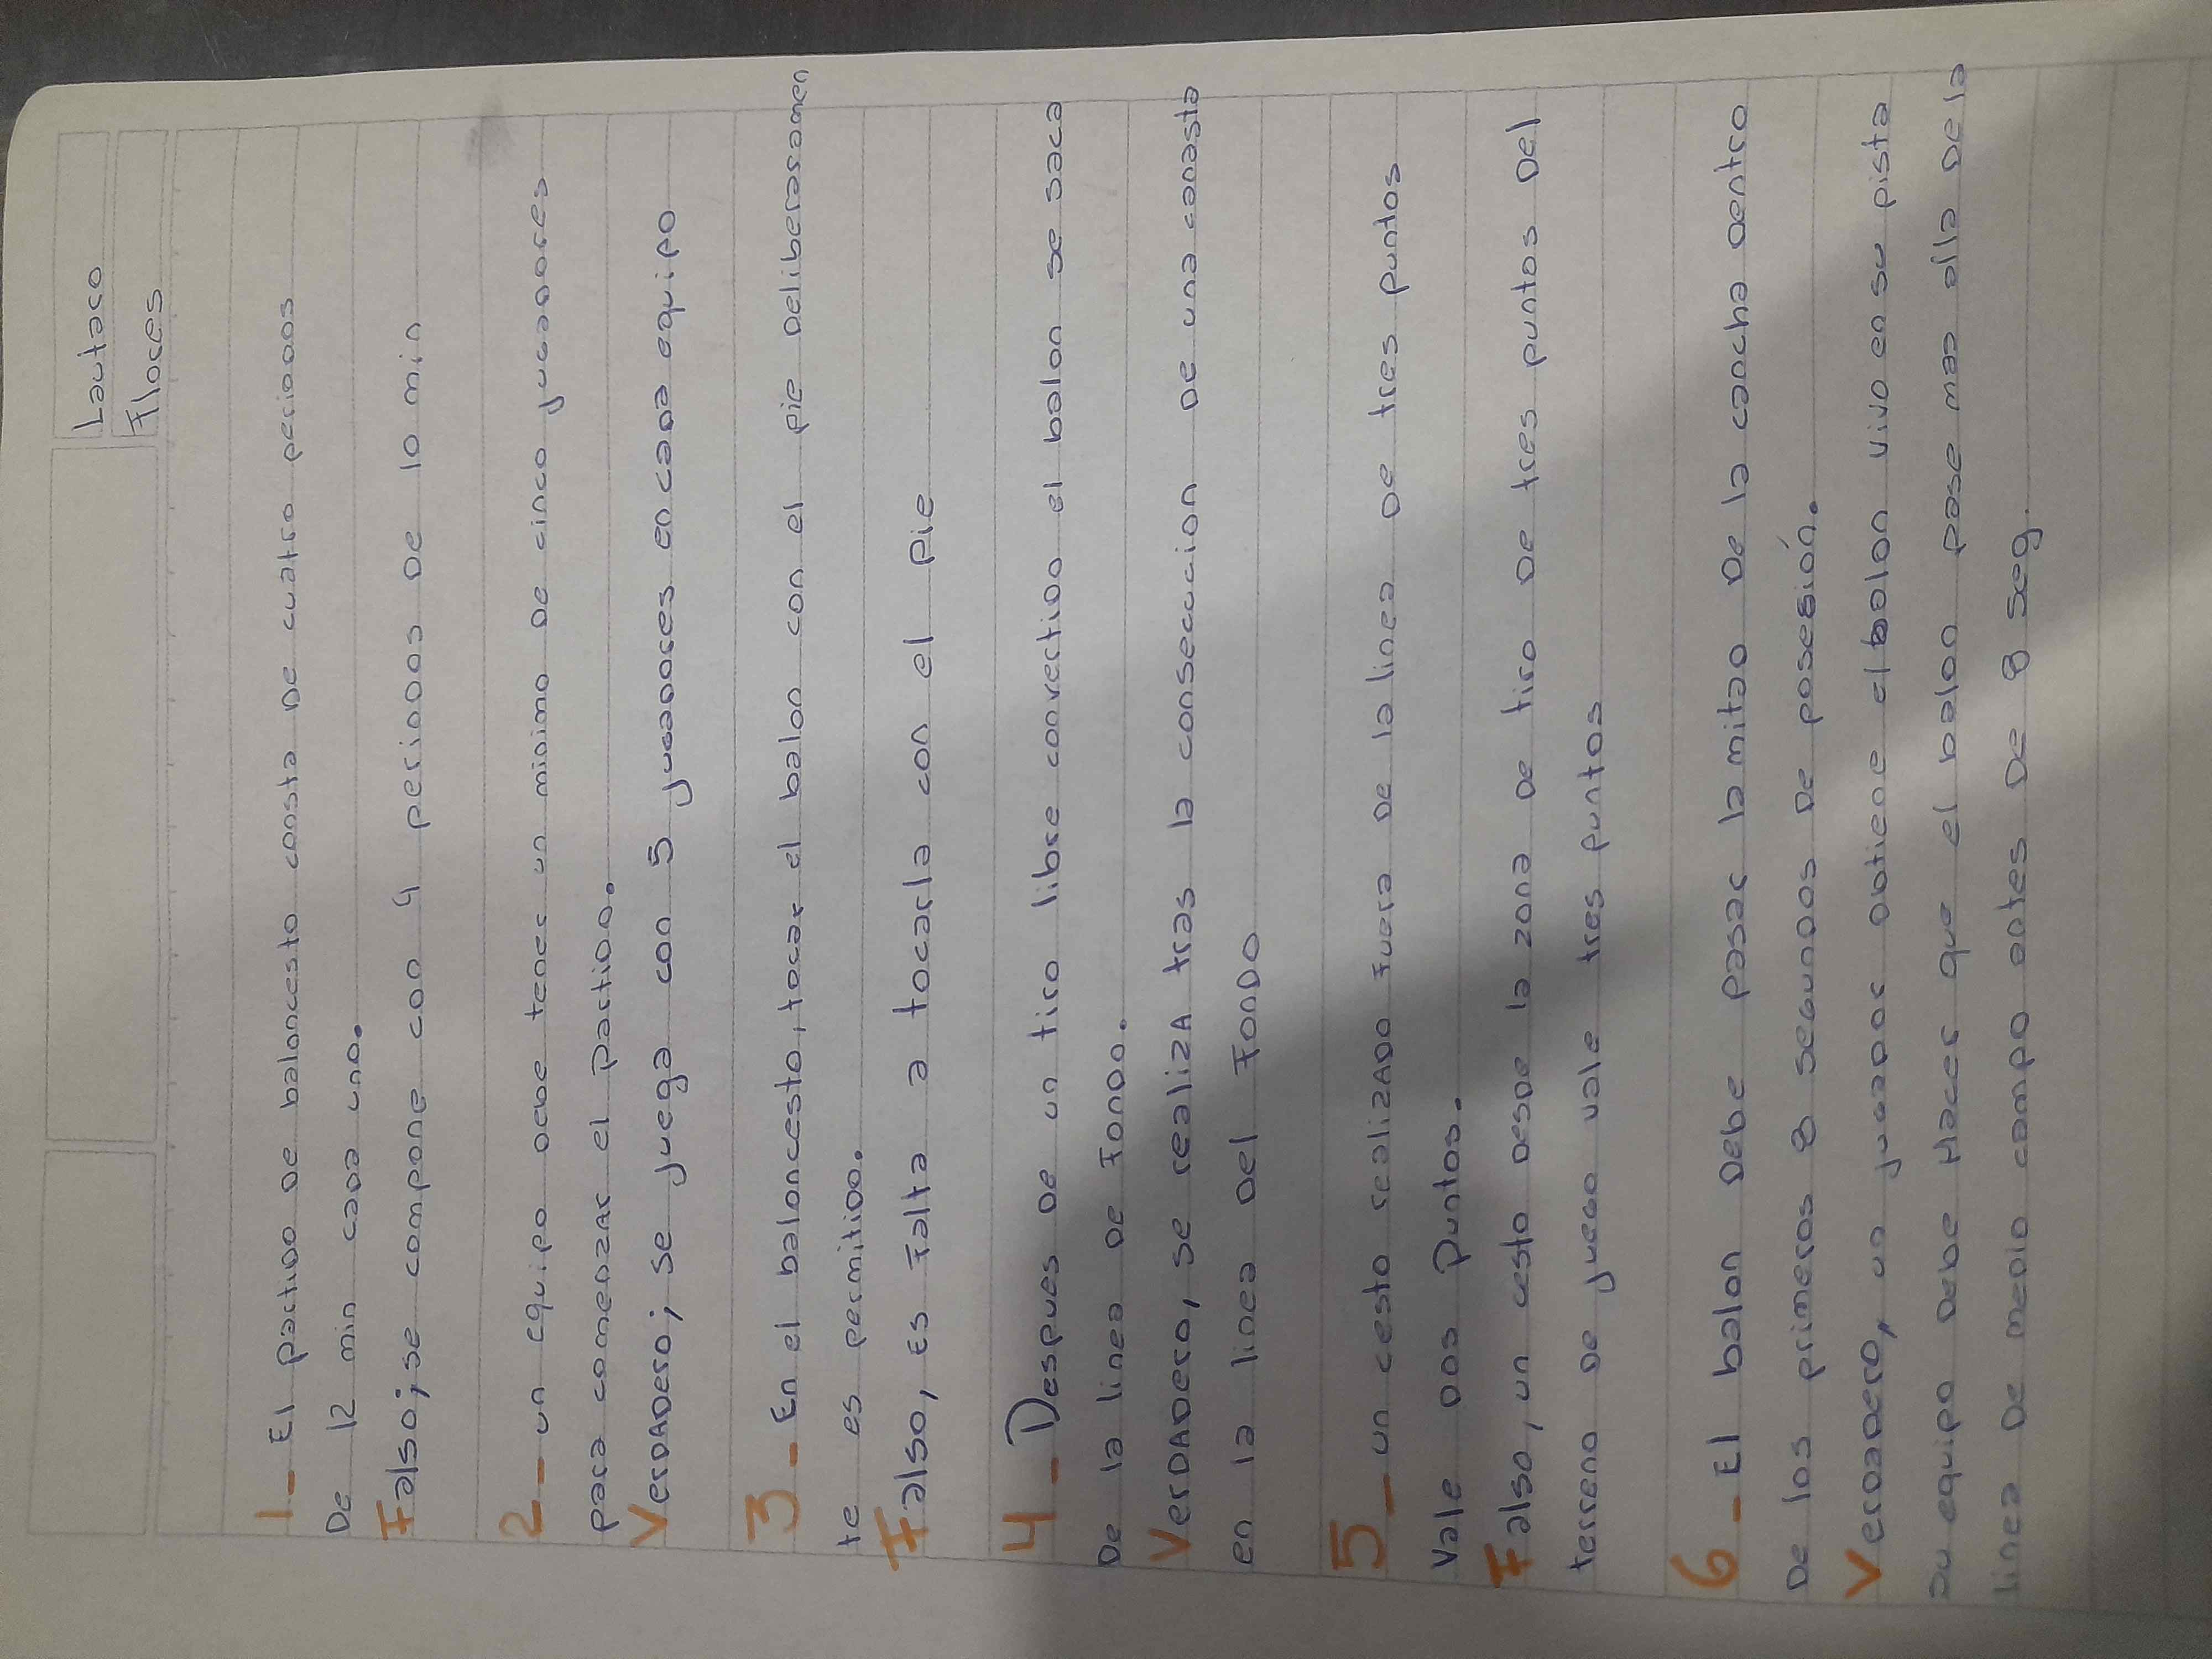 Lautaro
Flores
1- El partido de baloncesto consta de cuatro periodos
De 12 min cada uno.
Falso; se compone con 4 periodos de 10 min
2- un equipo debe tener un minimo de cinco jugadores
para comenzar el partido.
Verdadero; se juega con 5 jugadores en cada equipo
3- En el baloncesto, tocar el balon con el pie deliberasamen
te es permitido.
Falso, Es Falta a tocarla con el pie
4- Despues de un tiro libre convertido el balon se saca
De la linea de Fondo.
Verdadero, se realiza tras la conseccucion de una canasta
en la linea del Fondo
5- un cesto realizado fuera de la linea de tres puntos
Vale dos puntos.
Falso, un cesto desde la zona de tiro de tres puntos del
terreno de juego vale tres puntos
6- El balon debe pasar la mitad de la cancha dentro
De los primeros 8 segundos de posesión.
Verdadero, un jugador obtiene el balon vivo en su pista
su equipo debe Hacer que el balon pase mas alla de la
linea de medio campo antes de 8 seg.